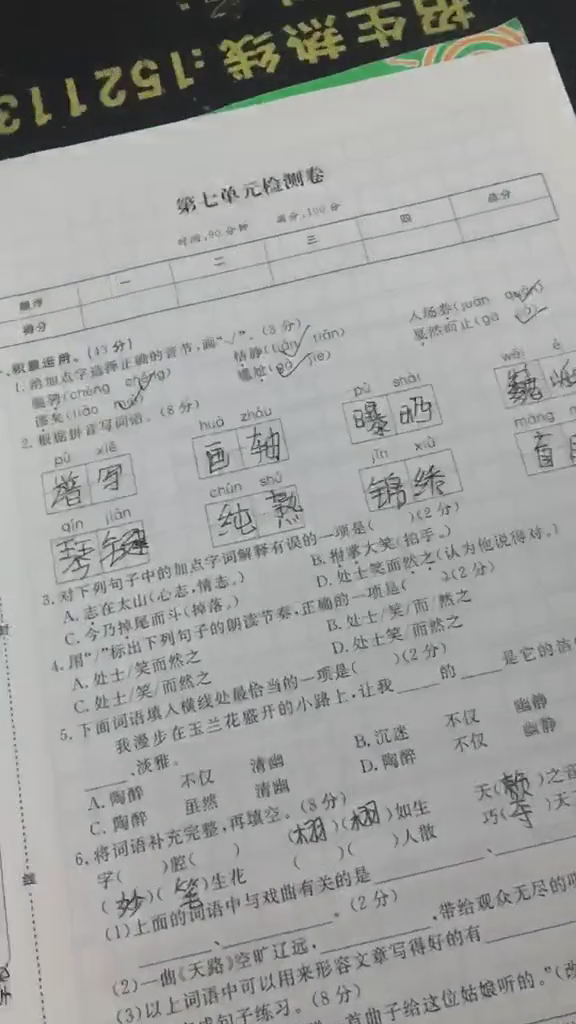 招生热线:152113
第七单元检测卷
时间:90分钟 满分:100分
题序 一 二 三 四 总分
得分
一、积累运用。(43分)
1. 给加点字选择正确的音节,画“√”。(3分)
恬静(tián
人场券(juàn quàn)
戛然而止(gā
尴尬(gà jiè)
2. 根据拼音写词语。(8分)
pǔ xiě huà zhóu pù shài wēi é
谱写 画轴 曝晒 巍峨
qín jiàn chún shú jǐn xiù máng
琴键 纯熟 锦绣 盲
3. 对下列句子中的加点字词解释有误的一项是( )(2分)
A. 志在太山(心志,情志。) B. 拊掌大笑(拍手。)
C. 今乃掉尾而斗(掉落。) D. 处士笑而然之(认为他说得对。)
4. 用“/”标出下列句子的朗读节奏,正确的一项是( )(2分)
A. 处士/笑而然之 B. 处士/笑/而/然之
C. 处士/笑/而然之 D. 处士笑/而然之
5. 下面词语填入横线处最恰当的一项是( )(2分)
我漫步在玉兰花盛开的小路上,让我____的____是它的洁
____、淡雅。
A. 陶醉 不仅 清幽 B. 沉迷 不仅 幽静
C. 陶醉 虽然 清幽 D. 陶醉 不仅 幽静
6. 将词语补充完整,再填空。(8分)
字( )腔( ) (栩)(栩)如生 天(籁)之音
(妙)(笔)生花 ( )( )人散 巧(夺)天工
(1)上面的词语中与戏曲有关的是____、
____、____。(2分)
(2)一曲《天路》空旷辽远,____,带给观众无尽的
(3)以上词语中可以用来形容文章写得好的有____
句子练习。(8分)
首曲子给这位姑娘听的。”(改